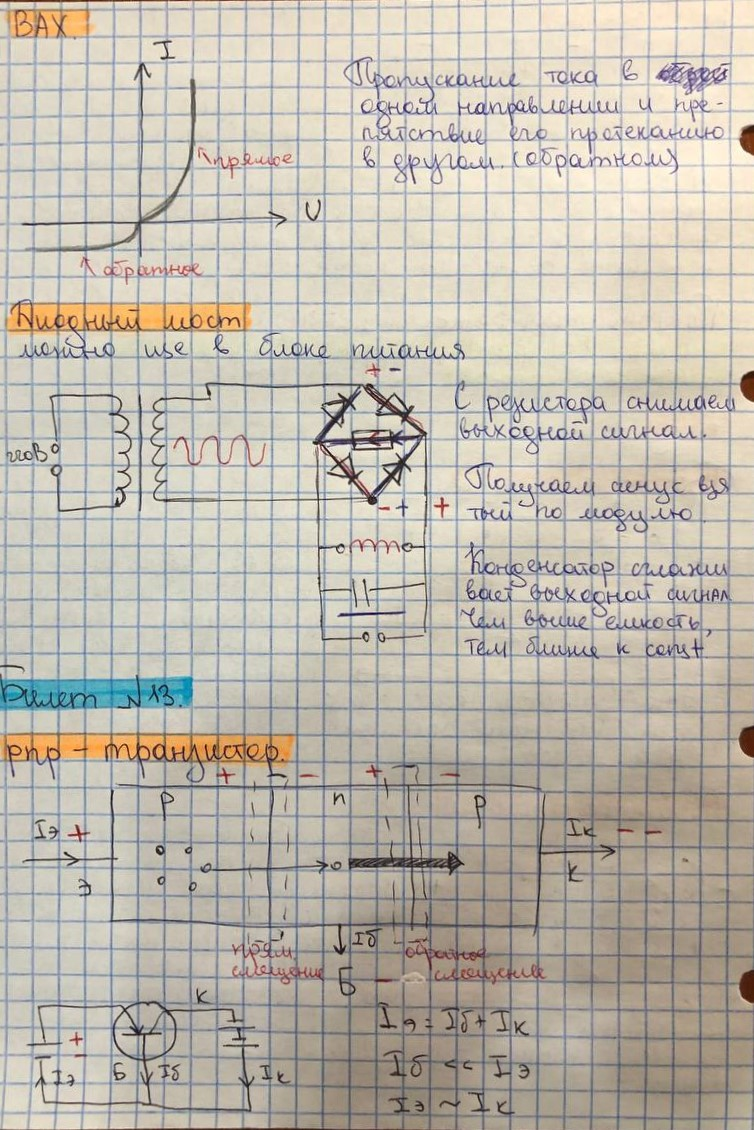 ВАХ.
I
Пропускание тока в
одном направлении и пре-
пятствие его протеканию
в другом. (обратном)
прямое
U
обратное
Диодный мост
можно ще в блоке питания
+ -
С резистора снимаем
выходной сигнал.
220В
Получаем синус взя
тый по модулю.
- + +
Конденсатор сглажи
вает выходной сигнал
Чем выше емкость,
тем ближе к const
Билет №13.
pnp - транзистор.
+ - + -
p n p
Iэ + Iк - -
Э К
Iб
прям. обратное
смещение Б - смещение
К
Iэ = Iб + Iк
+
-
Iэ Б Iб Iк
Iб << Iэ
Iэ ~ Iк